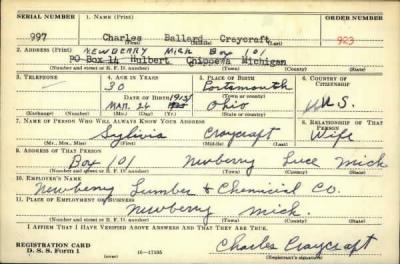 SERIAL NUMBER 1. NAME (Print) ORDER NUMBER
997 Charles Ballard Craycraft 923
(First) (Middle) (Last)
2. ADDRESS (Print) NEWBERRY MICH Box 101
PO Box 14 Hulbert Chippewa Michigan
(Number and street or R. F. D. number) (Town) (County) (State)
3. TELEPHONE 4. AGE IN YEARS 5. PLACE OF BIRTH 6. COUNTRY OF CITIZENSHIP
30 Portsmouth
DATE OF BIRTH (Town or county) U.S.
1913
Mar. 24 Ohio
(Exchange) (Number) (Mo.) (Day) (Yr.) (State or country)
7. NAME OF PERSON WHO WILL ALWAYS KNOW YOUR ADDRESS 8. RELATIONSHIP OF THAT PERSON
Sylivia Craycraft Wife
(Mr., Mrs., Miss) (First) (Middle) (Last)
9. ADDRESS OF THAT PERSON
Box 101 Newberry Luce Mich
(Number and street or R. F. D. number) (Town) (County) (State)
10. EMPLOYER'S NAME
Newberry Lumber & Chemicial Co.
11. PLACE OF EMPLOYMENT OR BUSINESS
Newberry Mich.
(Number and street or R. F. D. number) (Town) (County) (State)
I AFFIRM THAT I HAVE VERIFIED ABOVE ANSWERS AND THAT THEY ARE TRUE.
REGISTRATION CARD
D. S. S. Form 1 (over) 16—17105 Charles Craycraft
(Registrant's signature)